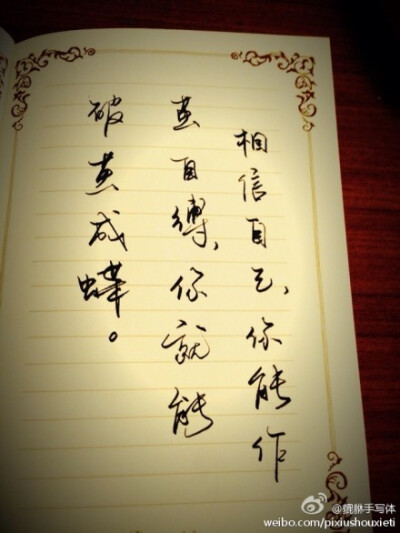 相信自己,你能作
茧自缚,你就能
破茧成蝶。
@貔貅手写体
weibo.com/pixiushouxieti